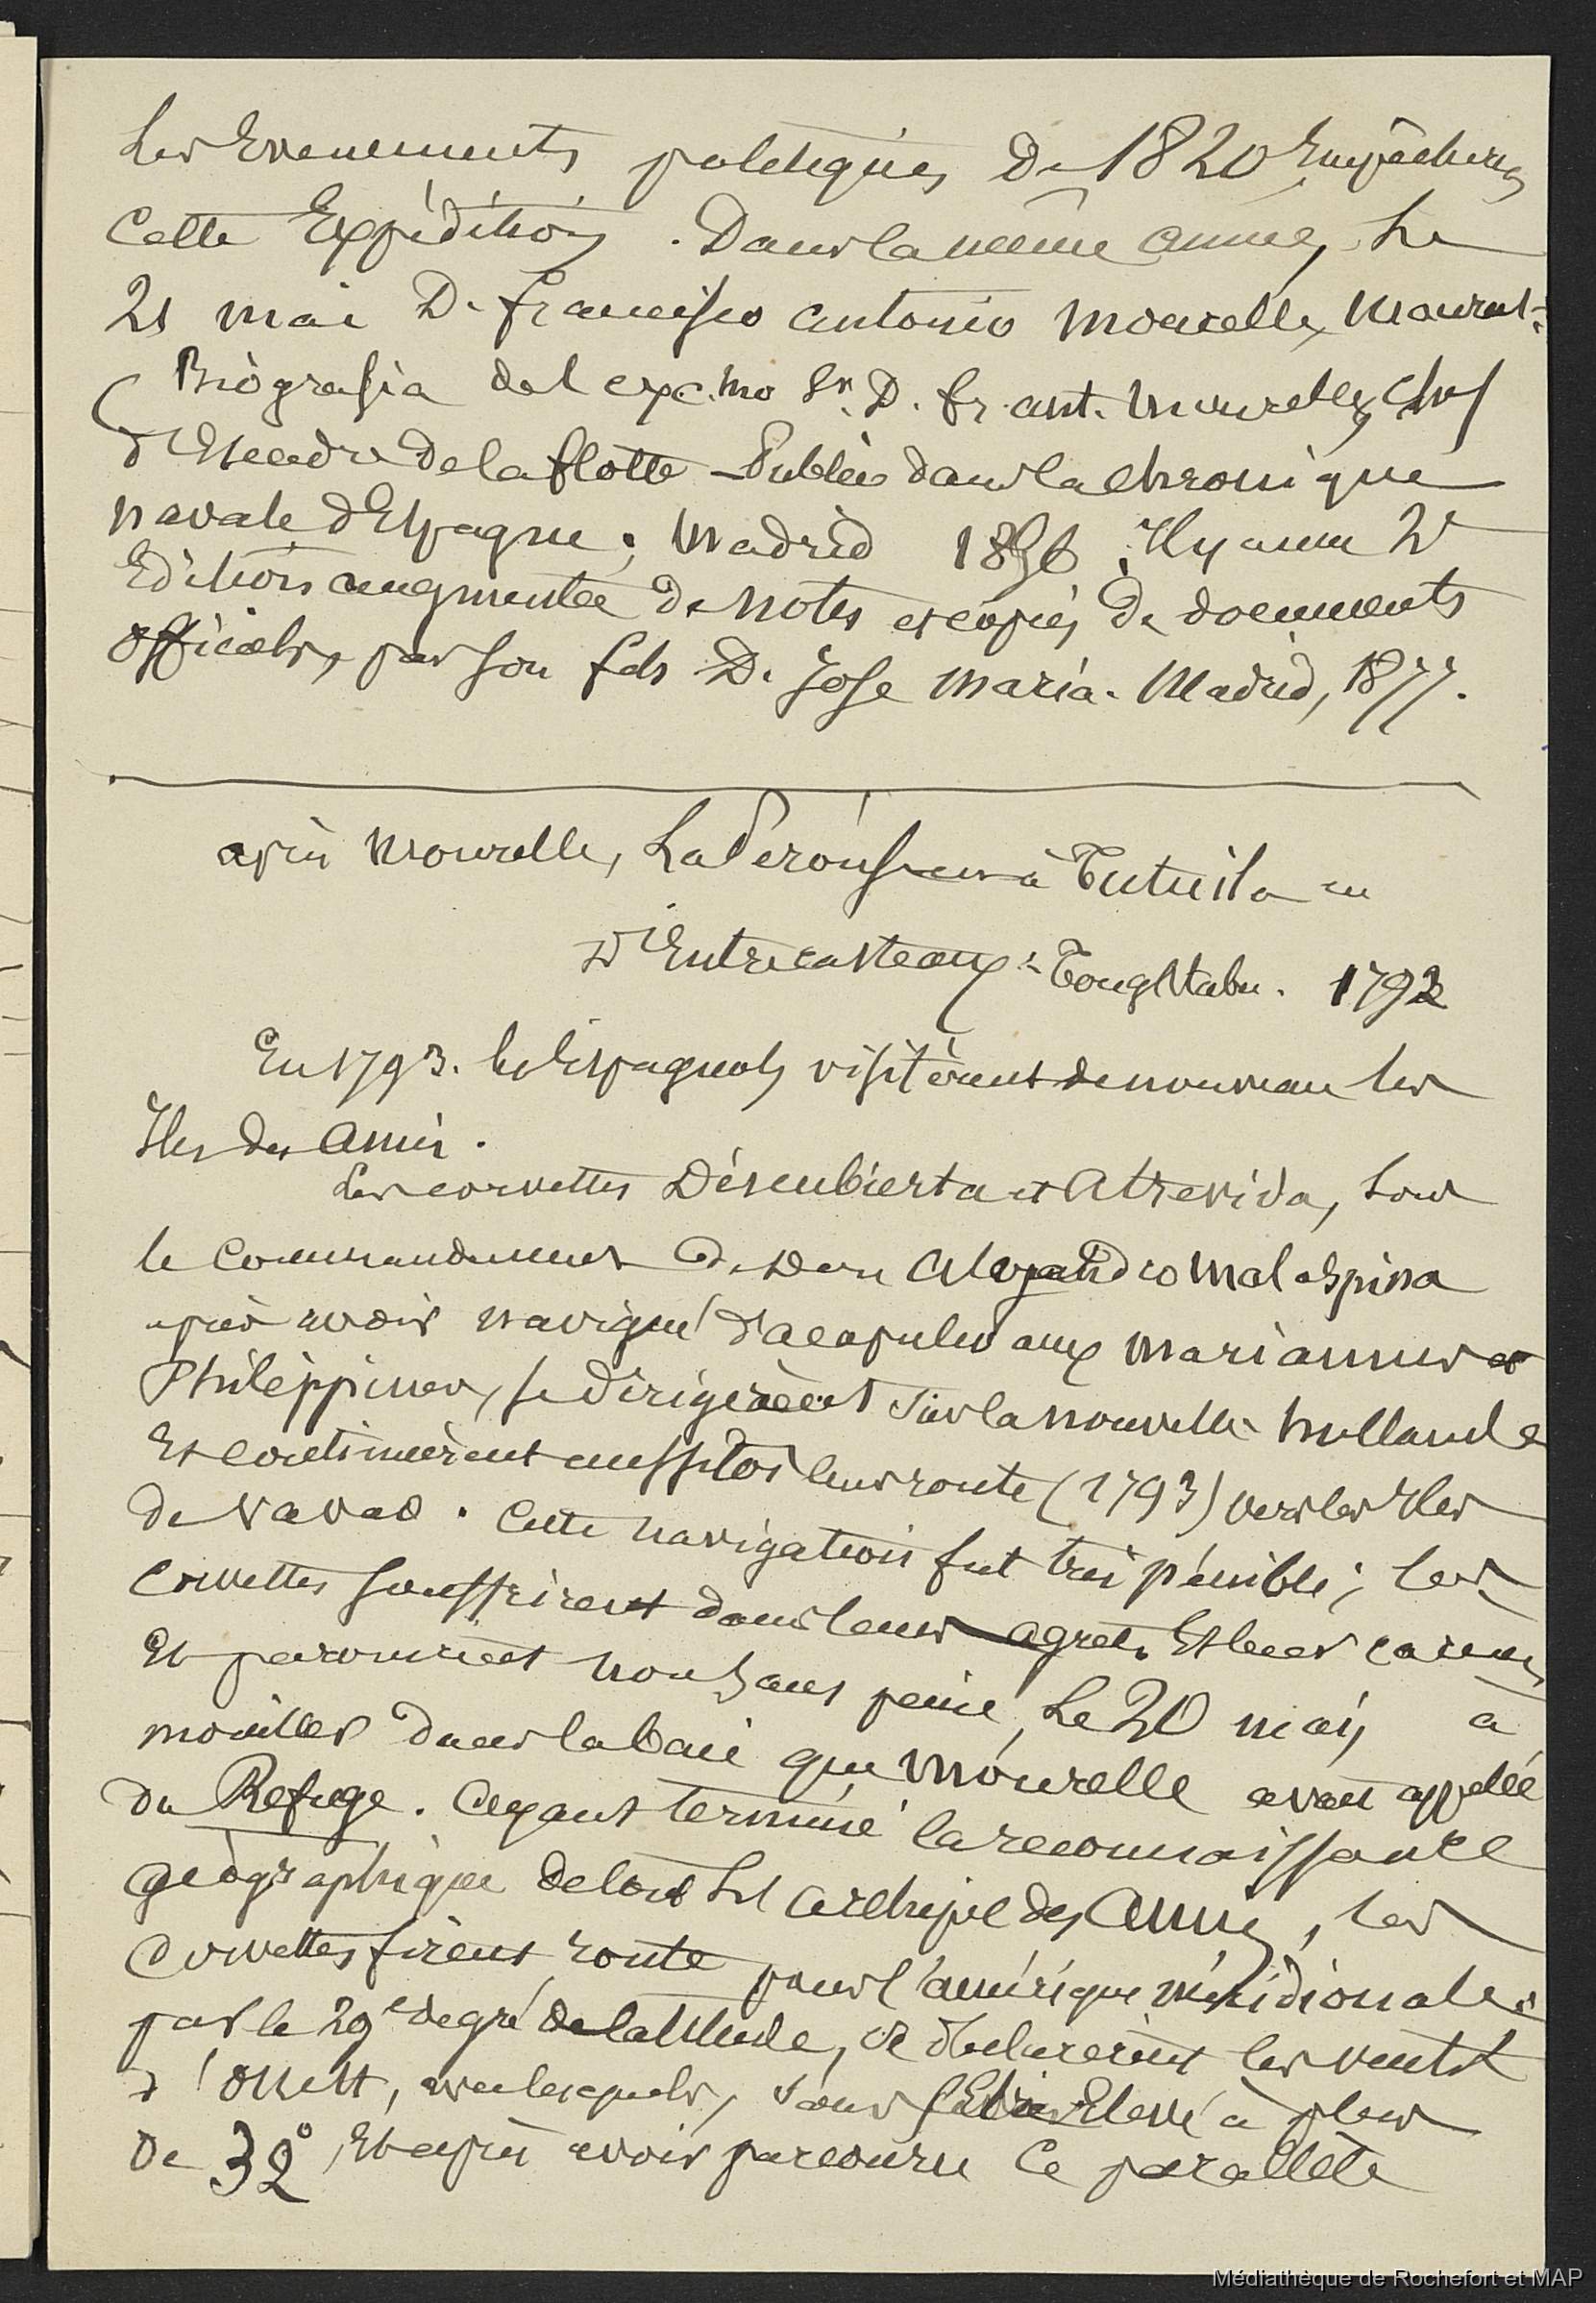 Les Evenements politiques De 1820 Empêchèrent
Cette Expédition. Dans la même année, Le
21 mai D. Francisco Antonio Mourelle, Mourut.
(Biografia del exc.mo Sr. D. Fr. Ant. Mourelle, Chef
d'Escadre de la flotte – Publiée dans la Chronique
navale d'Espagne, Madrid 1856. Il y a une 2e
Edition augmentée De notes et copies De documents
officiels, par son fils D. Jose Maria. Madrid, 1877.
après Mourelle, La Perouse à Tutuila en
D'Entrecasteaux à Tongatabu. 1793
En 1793. les Espagnols visitèrent de nouveau les
Iles des Amis.
Les corvettes Descubierta et Atrevida, sous
le Commandement De Don Alejandro Malaspina
après avoir navigué d'Acapulco aux Mariannes et
Philippines, se dirigèrent sur la nouvelle hollande
Et continuèrent aussitôt leur route (1793) vers les Iles
De Vavao. Cette navigation fut très pénible; les
Corvettes souffrirent dans leurs agrets Et leurs carènes
Et parvinrent non sans peine, Le 20 mai, à
mouiller dans la baie que Mourelle avait appellée
Du Refuge. Ayant terminé la reconnaissance
géographique de tout Archipel des Amis, les
Corvettes firent route pour l'amérique méridionale.
par le 29e degré de latitude, se déclarèrent les vents
d'Ouest, avec lesquels, s'élevé à plus
De 32°, Et après avoir parcouru Ce parallèle
Médiathèque de Rochefort et MAP